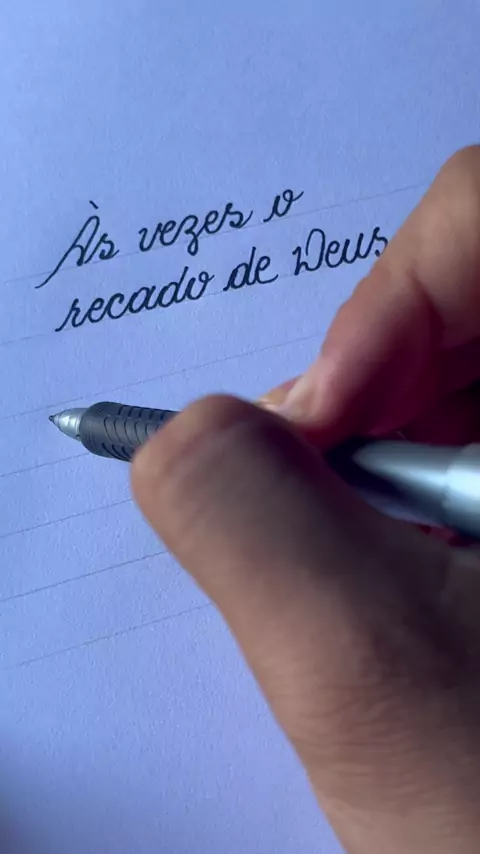 Às vezes o
recado de Deus